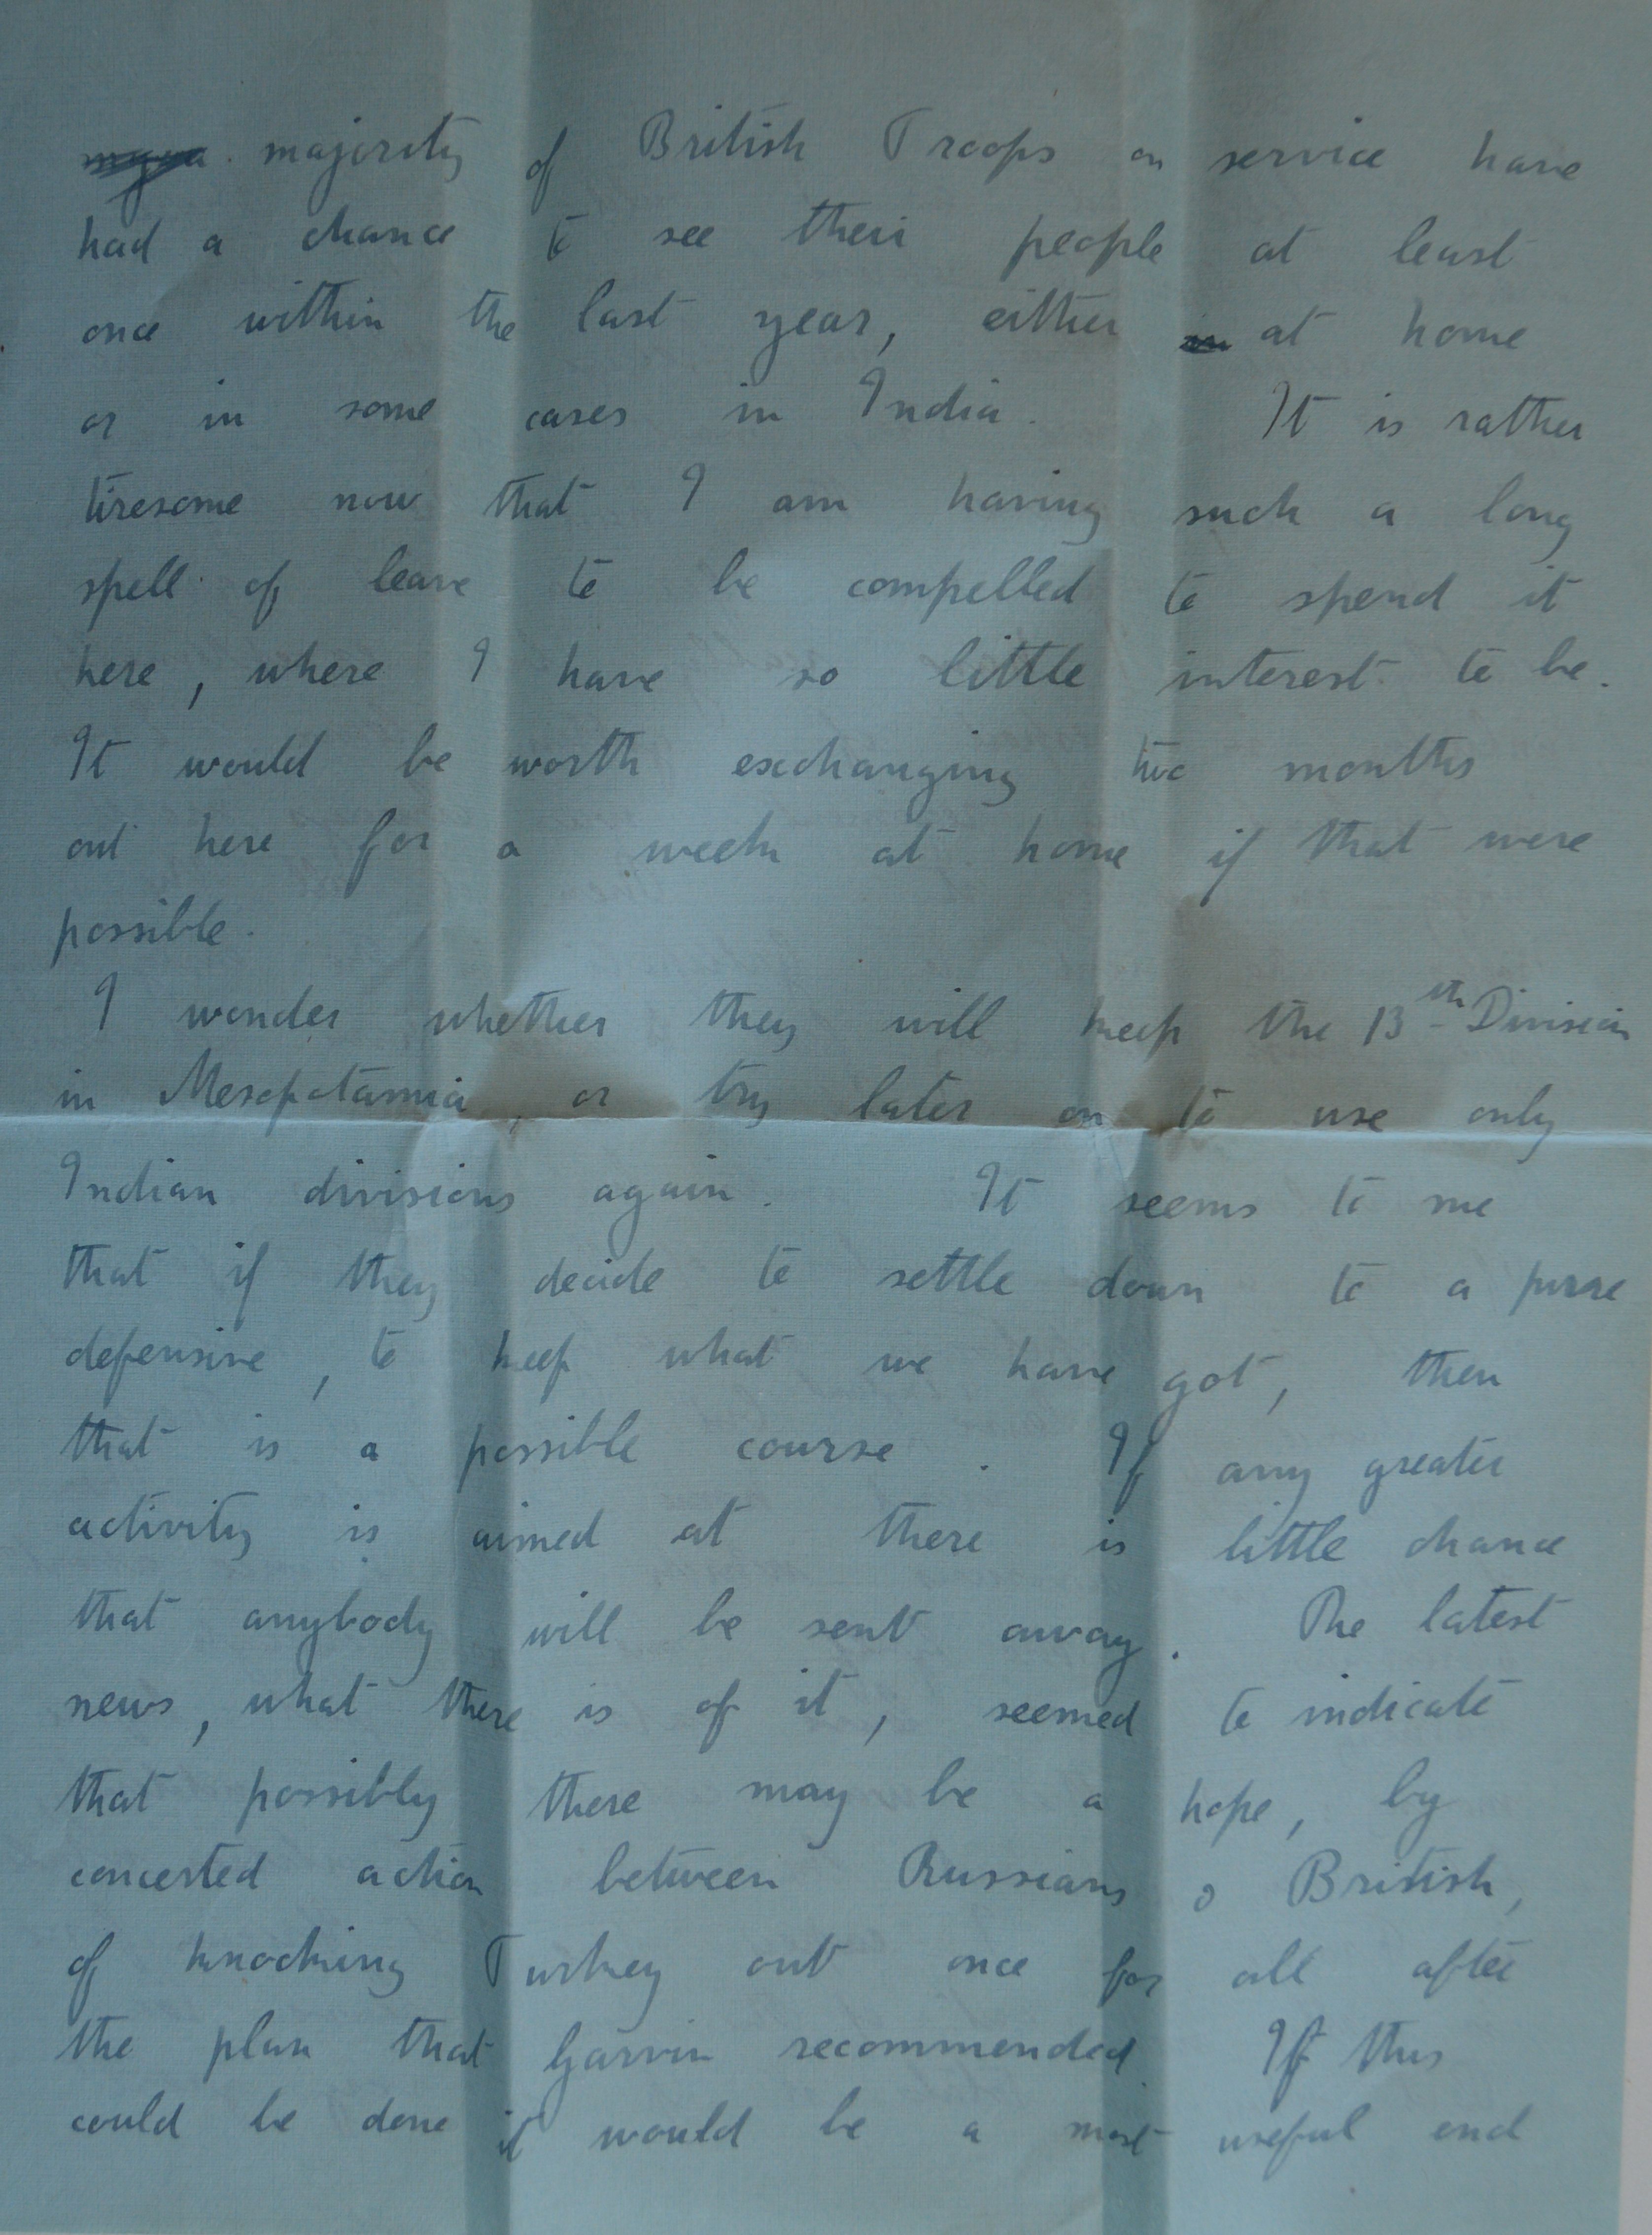 majority of British Troops on service have
had a chance to see their people at least
once within the last year, either at home
or in some cases in India. It is rather
tiresome now that I am having such a long
spell of leave to be compelled to spend it
here, where I have so little interest to be.
It would be worth exchanging two months
out here for a week at home if that were
possible.
I wonder whether they will keep the 13th Division
in Mesopotamia, or try later on to use only
Indian divisions again. It seems to me
that if they decide to settle down to a pure
defensive, to keep what we have got, then
that is a possible course. If any greater
activity is aimed at there is little chance
that anybody will be sent away. The latest
news, what there is of it, seemed to indicate
that possibly there may be a hope, by
concerted action between Russians & British,
of knocking Turkey out once for all after
the plan that Garvin recommended. If this
could be done it would be a most useful end